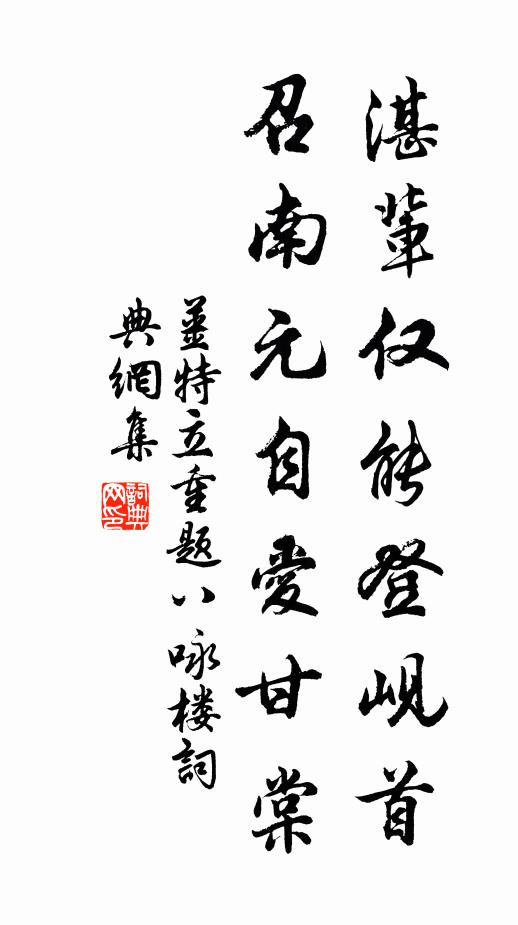 湛輩仅能登峴首
召南元自愛甘棠
姜特立重题八咏楼詞
典網集
詞典
网印